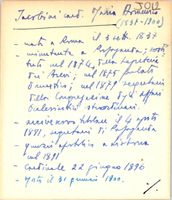 Jacobini card. Maria Domenico
(1837-1900)
- nato a Roma il 3 sett. 1837
- minutante a Propaganda; sosti-
tuto nel 1874 della segreteria
dei Brevi; nel 1875 prelato
domestico; nel 1879 segretario
della Congregazione degli affari
ecclesiastici straordinari.
- arcivescovo titolare il 4 agosto
1881, segretario di Propaganda
- nunzio apostolico a Lisbona
nel 1891
- Cardinale 22 giugno 1896
- Morto il 31 gennaio 1900.